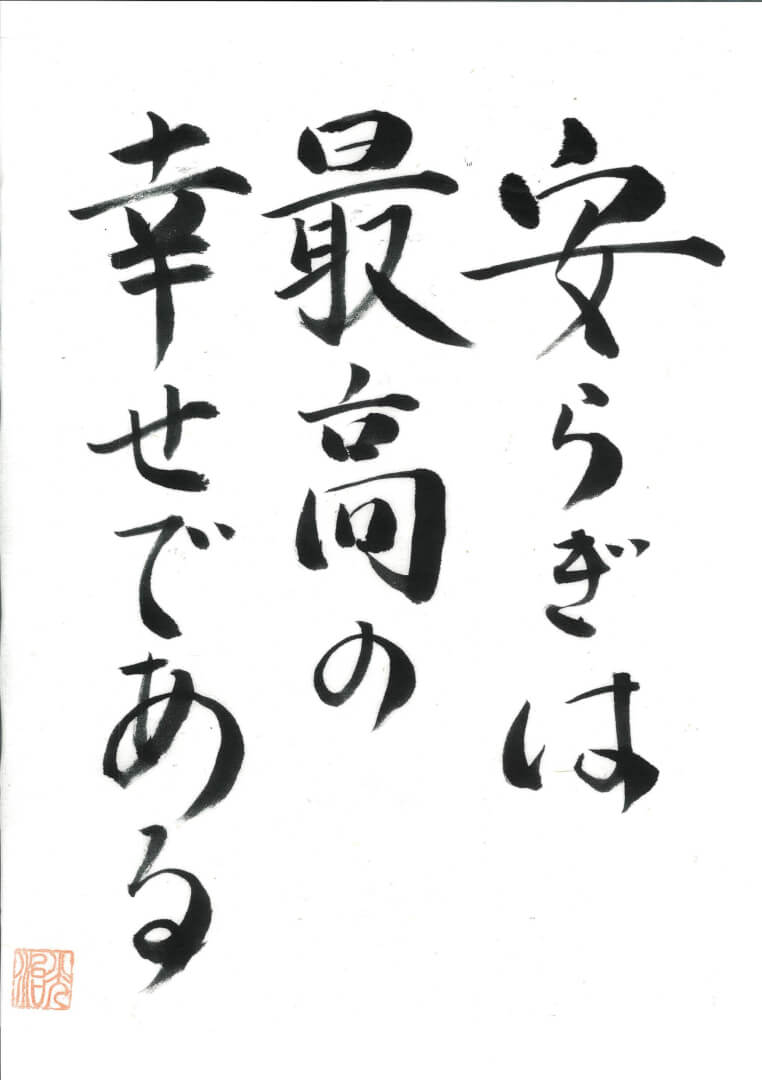 安らぎは
最高の
幸せである